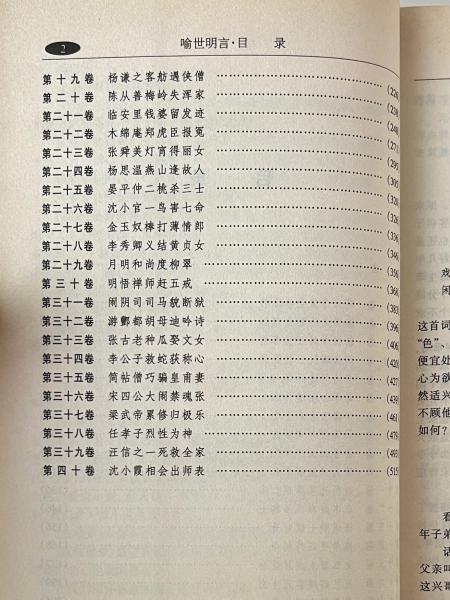 2 喻世明言·目 录
第十九卷 杨谦之客舫遇侠僧 (226)
第二十卷 陈从善梅岭失浑家 (238)
第二十一卷 临安里钱婆留发迹 (248)
第二十二卷 木绵庵郑虎臣报冤
第二十三卷 张舜美灯宵得丽女 (295)
第二十四卷 杨思温燕山逢故人
第二十五卷 晏平仲二桃杀三士 (320)
第二十六卷 沈小官一鸟害七命
第二十七卷 金玉奴棒打薄情郎 (336)
第二十八卷 李秀卿义结黄贞女 (346)
第二十九卷 月明和尚度柳翠 (356)
第三十卷 明悟禅师赶五戒 (368)
第三十一卷 闹阴司司马貌断狱 (383)
第三十二卷 游酆都胡母迪吟诗 (396)
第三十三卷 张古老种瓜娶文女 (406)
第三十四卷 李公子救蛇获称心 (420)
第三十五卷 简帖僧巧骗皇甫妻 (427)
第三十六卷 宋四公大闹禁魂张 (439)
第三十七卷 梁武帝累修归极乐 (461)
第三十八卷 任孝子烈性为神 (479)
第三十九卷 汪信之一死救全家 (493)
第四十卷 沈小霞相会出师表 (515)
戏
闲
这首词
“色”、
便宜处
心为欲
然适兴
不顾他
如何?
看
年子弟
话
父亲叫
这兴哥